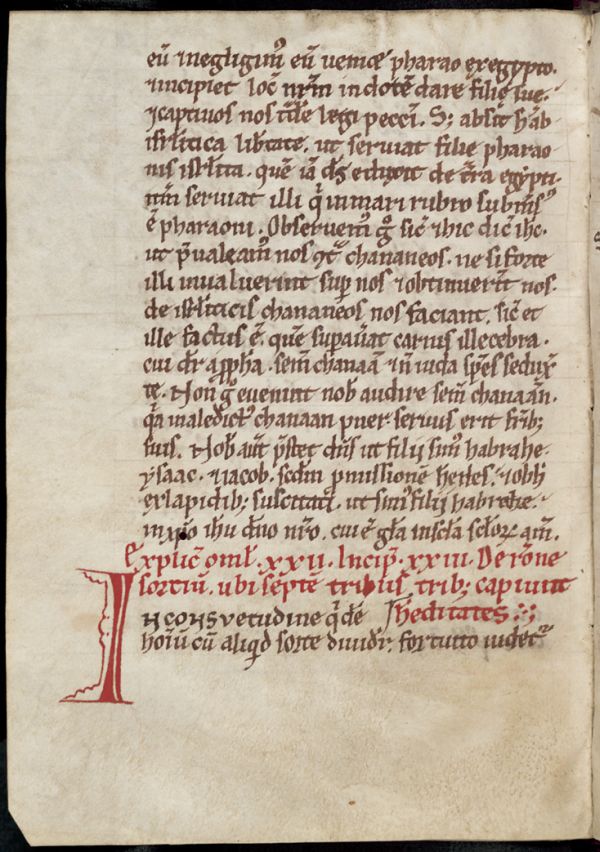 eū ⁊ negligim᷒ eū veniet pharao ex egypto.
⁊ incipiet locū nrm̄ in dotē dare filię suę.
⁊ captivos nos tīdē legi peccī. S; absit hāb
isrlitica libtate. ut serviat filię pharao
nis isrlita. quē iā ds̄ eduxit de tr̄ra egypti.
nūm serviat illi q̄ in mari rubro submsus
ē pharaoni. Observem᷒ ḡ sic̄ ⁊ hic dic̄ ihc̄.
ut p̄valeam᷒ nos ꝯt᷒ chananeos. ne si forte
illi invaluerint sup nos ⁊ obtinuer̄t nos.
de isrliticis chananeos nos faciant. sic̄ et
ille factus ē. quē supav̄at carius illecebra.
cui dr̄ a ppha. sem̄ chanaā ⁊ n̄ iuda spēs sedux̄
te. Non ḡ eveniat nob̄ audire sem̄ chanaān.
q̄a maledict᷒ chanaan puer. servus erit frīb;
suis. Nob̄ aut̄ p̄stet dn̄s ut filii sim᷒ habrahę.
ysaac. ⁊ iacob. scdm̄ pmissionē hedes. ⁊ obl̄i
ex lapidib; suscitati. ut sim᷒ filii habrahę.
in xp̄o ihu dn̄o nr̄o. cui ē gl̄a in scl̄a scl̄oꝝ. am̄.
Explic̄ oml̄. xxii. Incip̄. xxiii. De rōne
sortiū. ubi septē tribus trib; capiunt
IN CONSVETUDINE q̄dē hęditates
hoīu cū aliqd sorte dividr̄; fortuito videt᷒